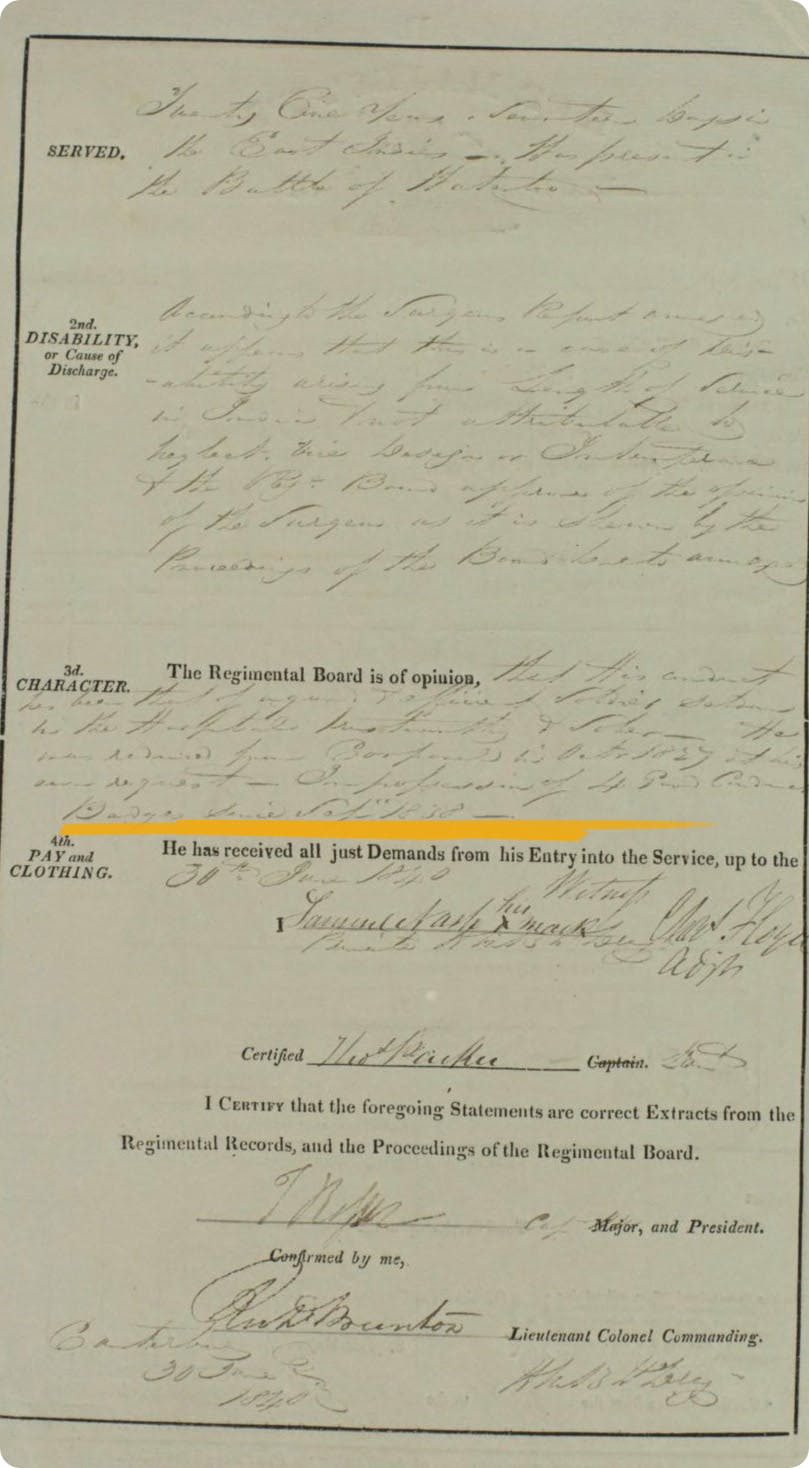 Twenty One Years Seventeen Days in
SERVED. the East Indies Was present in
the Battle of Waterloo
According to the Surgeons Report annexed
2nd.
DISABILITY, it appears that this is a case of Dis-
or Cause of
Discharge. -ability arising from Length of Service
in India & not attributable to
neglect, vice Design or Intemperance
& the Regt. Board approves of the opinion
of the Surgeon as it is shewn by the
Proceedings of the Board hereto annexed
3d.
CHARACTER. The Regimental Board is of opinion, that His conduct
has been that of a good & efficient Soldier seldom
in the Hospital Trustworthy & Sober He
was reduced from Corporal in Octr. 1827 at his
own request In possession of 4 Good Conduct
Badges since Sepr. 1838
4th.
PAY and
CLOTHING. He has received all just Demands from his Entry into the Service, up to the
30th June 1840
Witness
I Samuel his x mark
Chas. Adjt
Certified Captain.
I CERTIFY that the foregoing Statements are correct Extracts from the
Regimental Records, and the Proceedings of the Regimental Board.
Major, and President.
Confirmed by me,
Lieutenant Colonel Commanding.
30 June
1840